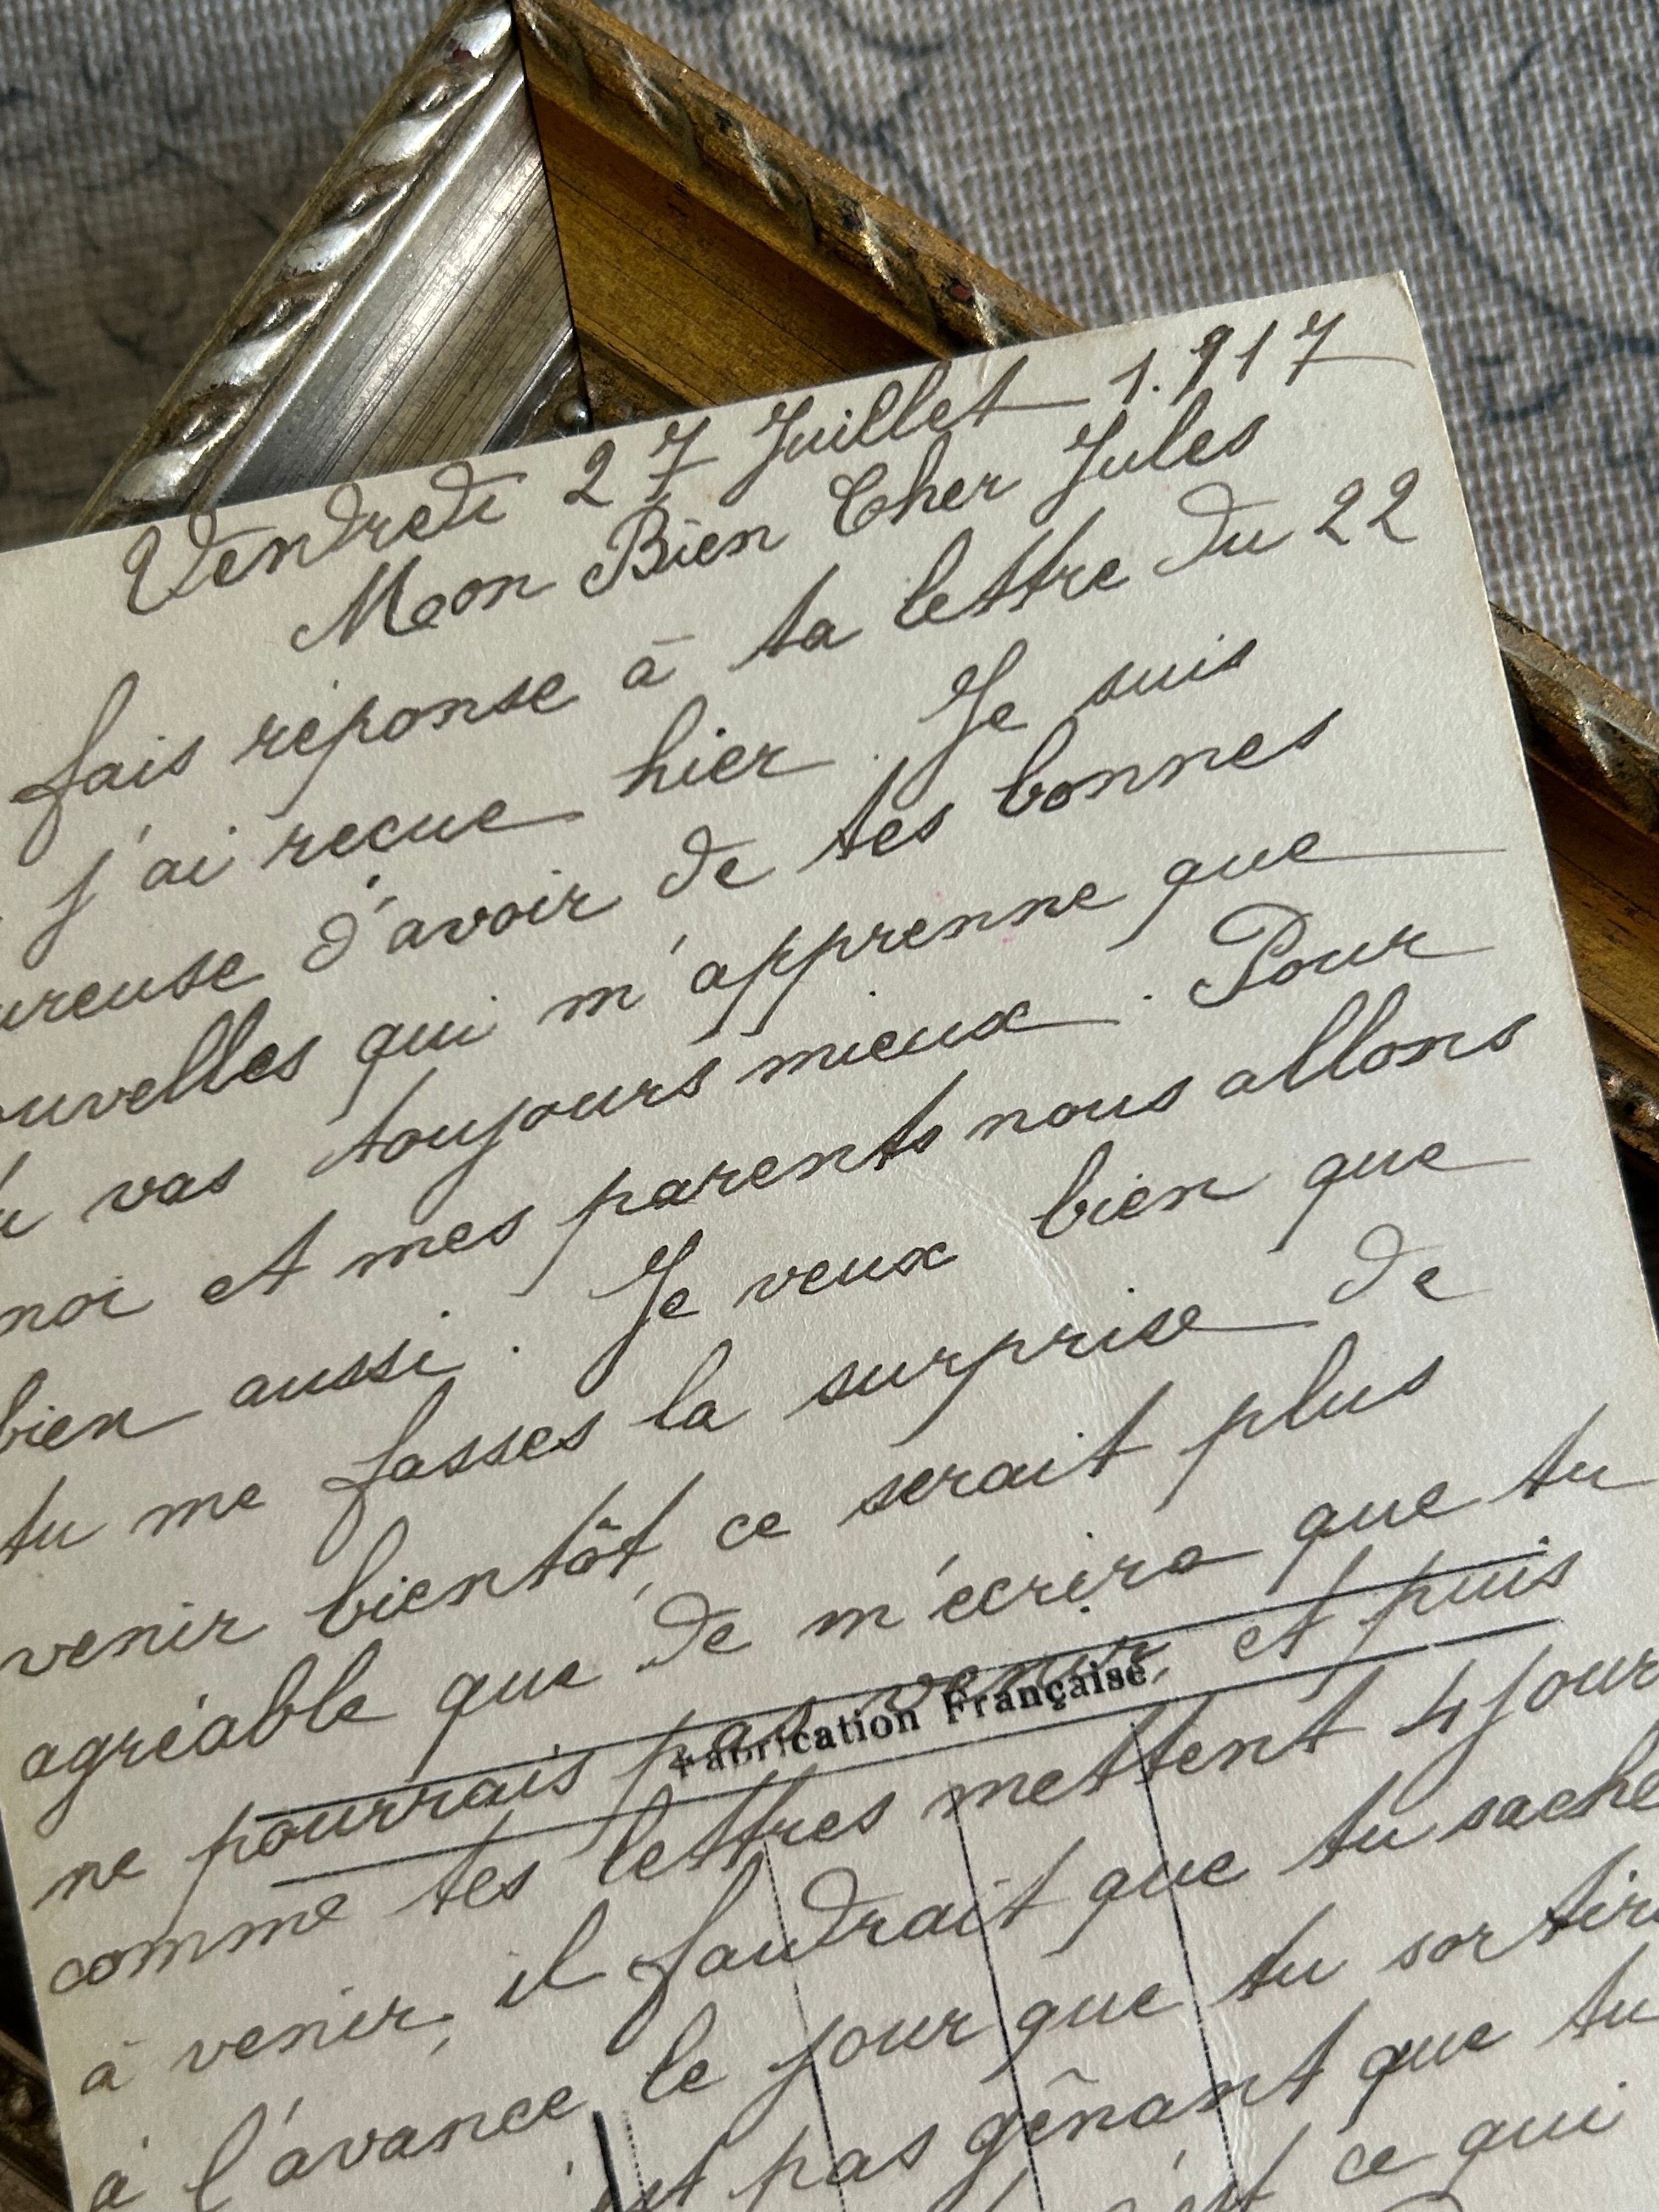 Vendredi 27 Juillet 1.917
Mon Bien Cher Jules
fais réponse à ta lettre du 22
j'ai recue hier. Je suis
ureuse d'avoir de tes bonnes
ouvelles qui m'apprenne que
u vas toujours mieux. Pour
moi et mes parents nous allons
bien aussi. Je veux bien que
tu me fasses la surprise de
venir bientôt, ce serait plus
agréable que de m'écrire que tu
ne pourrais pas venir, et puis
Fabrication Française
comme tes lettres mettent 4 jour
à venir, il faudrait que tu sache
à l'avance le jour que tu sortir
est pas gênant que tu
ce qui